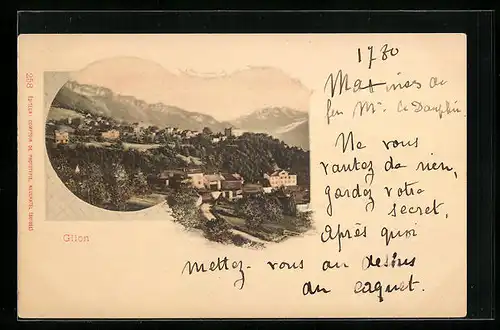 1780
Maximes de
feu Mr. le Dauphin
Ne vous
vantez de rien,
gardez votre
secret,
Après quoi
mettez-vous au dessus
du caquet.
Glion
258 EDITEUR: COMPTOIR DE PHOTOTYPIE, NEUCHATEL